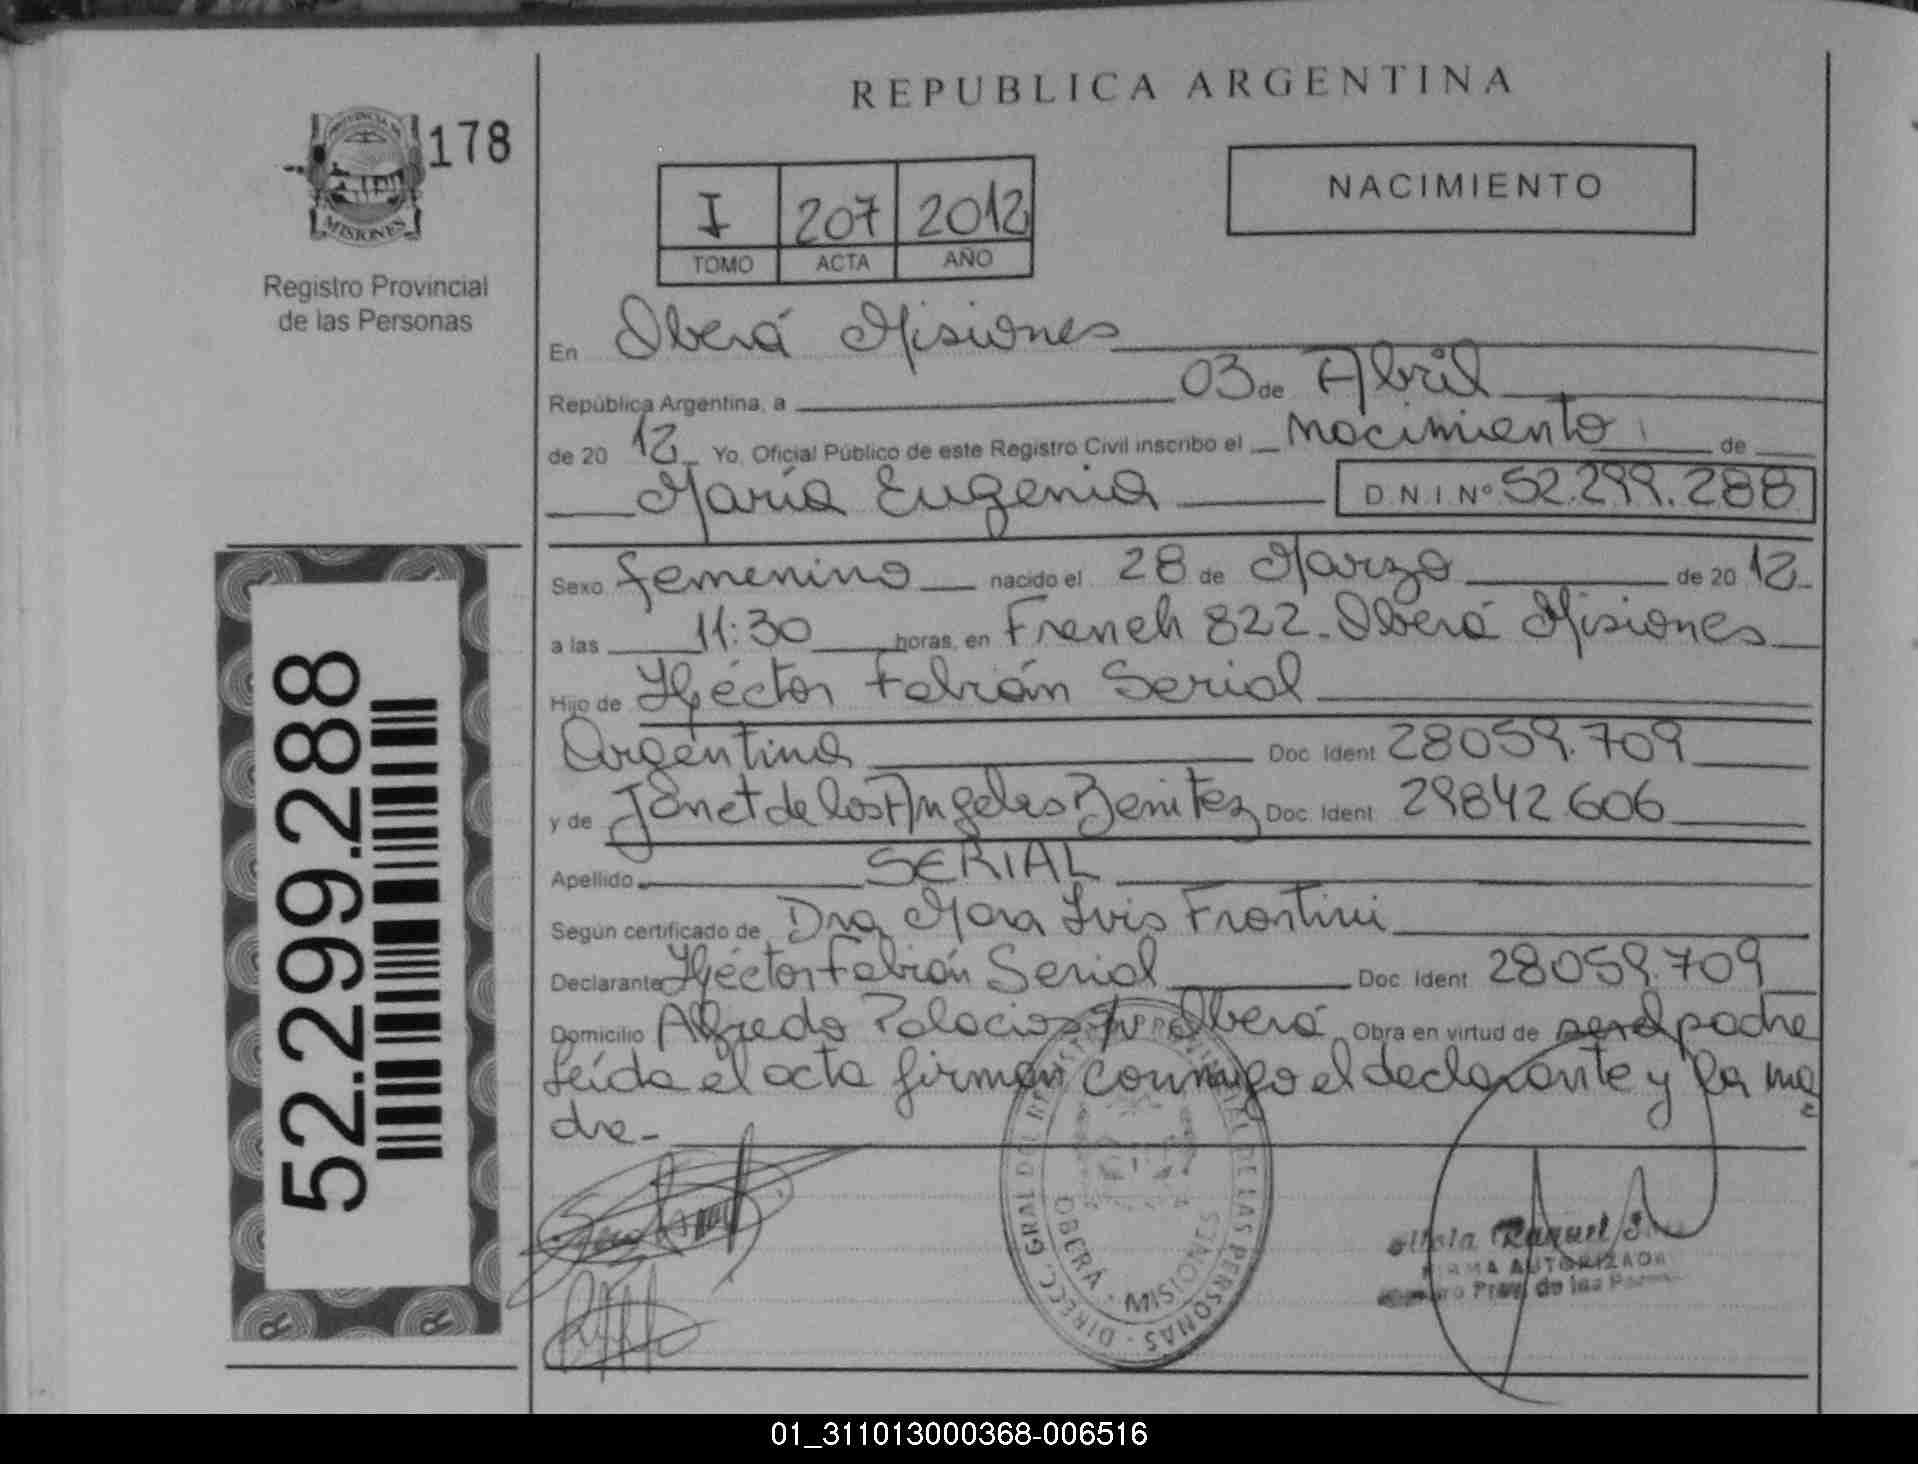 REPUBLICA ARGENTINA
PROVINCIA DE
MISIONES
178
Registro Provincial
de las Personas
I 207 2012
TOMO ACTA AÑO
NACIMIENTO
En Oberá Misiones
República Argentina, a 03 de Abril
de 20 12 Yo, Oficial Público de este Registro Civil inscribo el nacimiento de
María Eugenia D.N.I. Nº 52.299.288
Sexo femenino nacido el 28 de Marzo de 20 12
a las 11:30 horas, en French 822 - Oberá Misiones
Hijo de Héctor Fabián Serial
Argentina Doc. Ident. 28059.709
y de Janet de los Angeles Benitez Doc. Ident. 29842.606
Apellido SERIAL
Según certificado de Dra Mara Luis Frontini
Declarante Héctor Fabián Serial Doc. Ident. 28059.709
Domicilio Alfredo Palacios s/n Oberá Obra en virtud de ser el padre
Leída el acta firman conmigo el declarante y la ma
dre-
52.299.288
DIRECC. GRAL DEL REGISTRO PROVINCIAL DE LAS PERSONAS
OBERÁ - MISIONES
Raquel
FIRMA AUTORIZADA
Prov. de las
R R
01_311013000368-006516